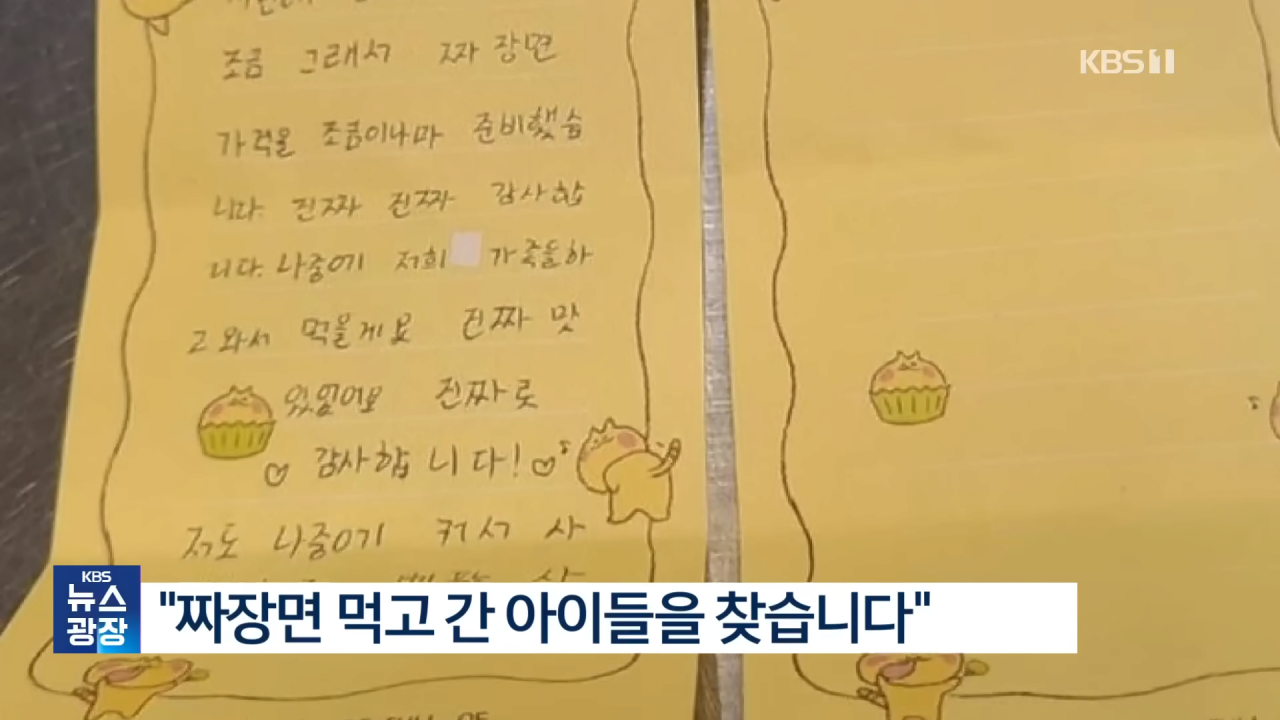 조금 그래서 짜장면
가격을 조금이나마 준비했습
니다. 진짜 진짜 감사합
니다. 나중에 저희 가족들하
고 와서 먹을게요 진짜 맛
있었어요 진짜로
감사합니다!
저도 나중에 커서 사
KBS1
KBS
뉴스
광장
"짜장면 먹고 간 아이들을 찾습니다"